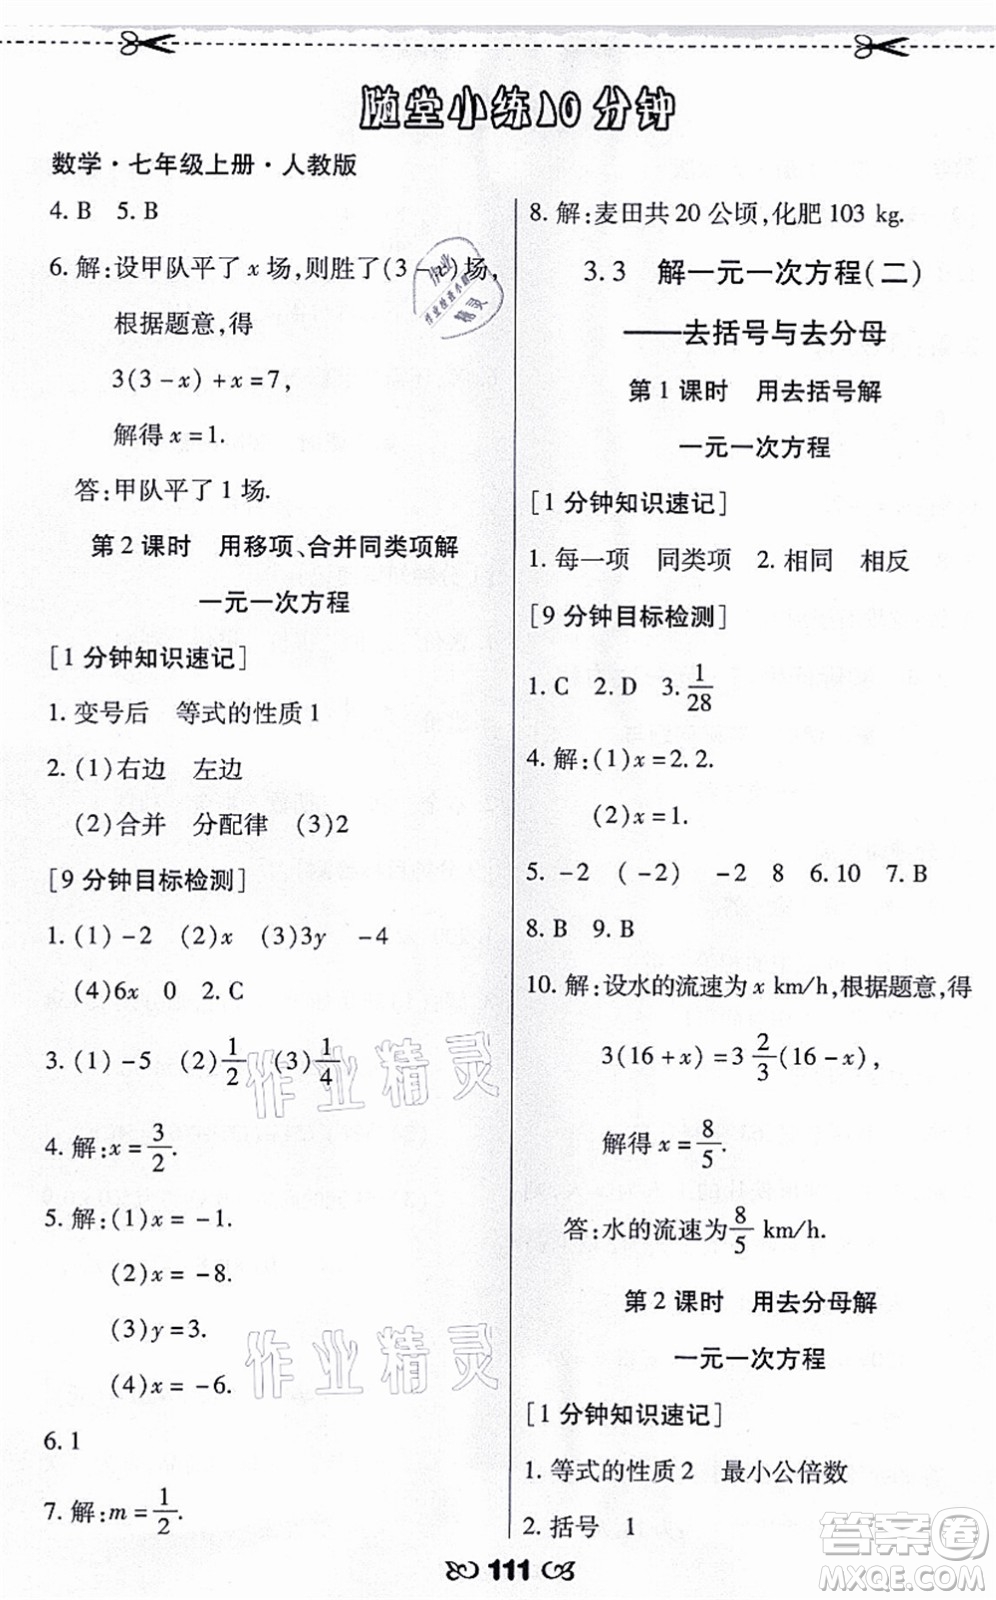 随堂小练10分钟
数学·七年级上册·人教版
4. B 5. B
6. 解:设甲队平了 x 场,则胜了(3-x)场,
根据题意,得
3(3-x)+x=7,
解得 x=1.
答:甲队平了 1 场.
第 2 课时 用移项、合并同类项解
一元一次方程
[1 分钟知识速记]
1. 变号后 等式的性质 1
2. (1)右边 左边
(2)合并 分配律 (3)2
[9 分钟目标检测]
1. (1) -2 (2)x (3)3y -4
(4)6x 0 2. C
3. (1) -5 (2)1/2 (3)1/4
4. 解:x=3/2.
5. 解:(1)x=-1.
(2)x=-8.
(3)y=3.
(4)x=-6.
6. 1
7. 解:m=1/2.
8. 解:麦田共 20 公顷,化肥 103 kg.
3.3 解一元一次方程(二)
——去括号与去分母
第 1 课时 用去括号解
一元一次方程
[1 分钟知识速记]
1. 每一项 同类项 2. 相同 相反
[9 分钟目标检测]
1. C 2. D 3. 1/28
4. 解:(1)x=2.2.
(2)x=1.
5. -2 (-2) -2 8 6. 10 7. B
8. B 9. B
10. 解:设水的流速为 x km/h,根据题意,得
3(16+x)=3 2/3(16-x),
解得 x=8/5.
答:水的流速为8/5 km/h.
第 2 课时 用去分母解
一元一次方程
[1 分钟知识速记]
1. 等式的性质 2 最小公倍数
2. 括号 1
111
作业精灵
作业精灵
答案圈
MXQE.COM